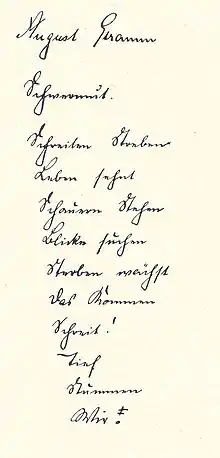 August Stramm
Schwermut.
Schreiten Streben
Leben sehnt
Schauern Stehen
Blicke suchen
Sterben wächst
Das Kommen
Schreit!
Tief
Stummen
Wir!